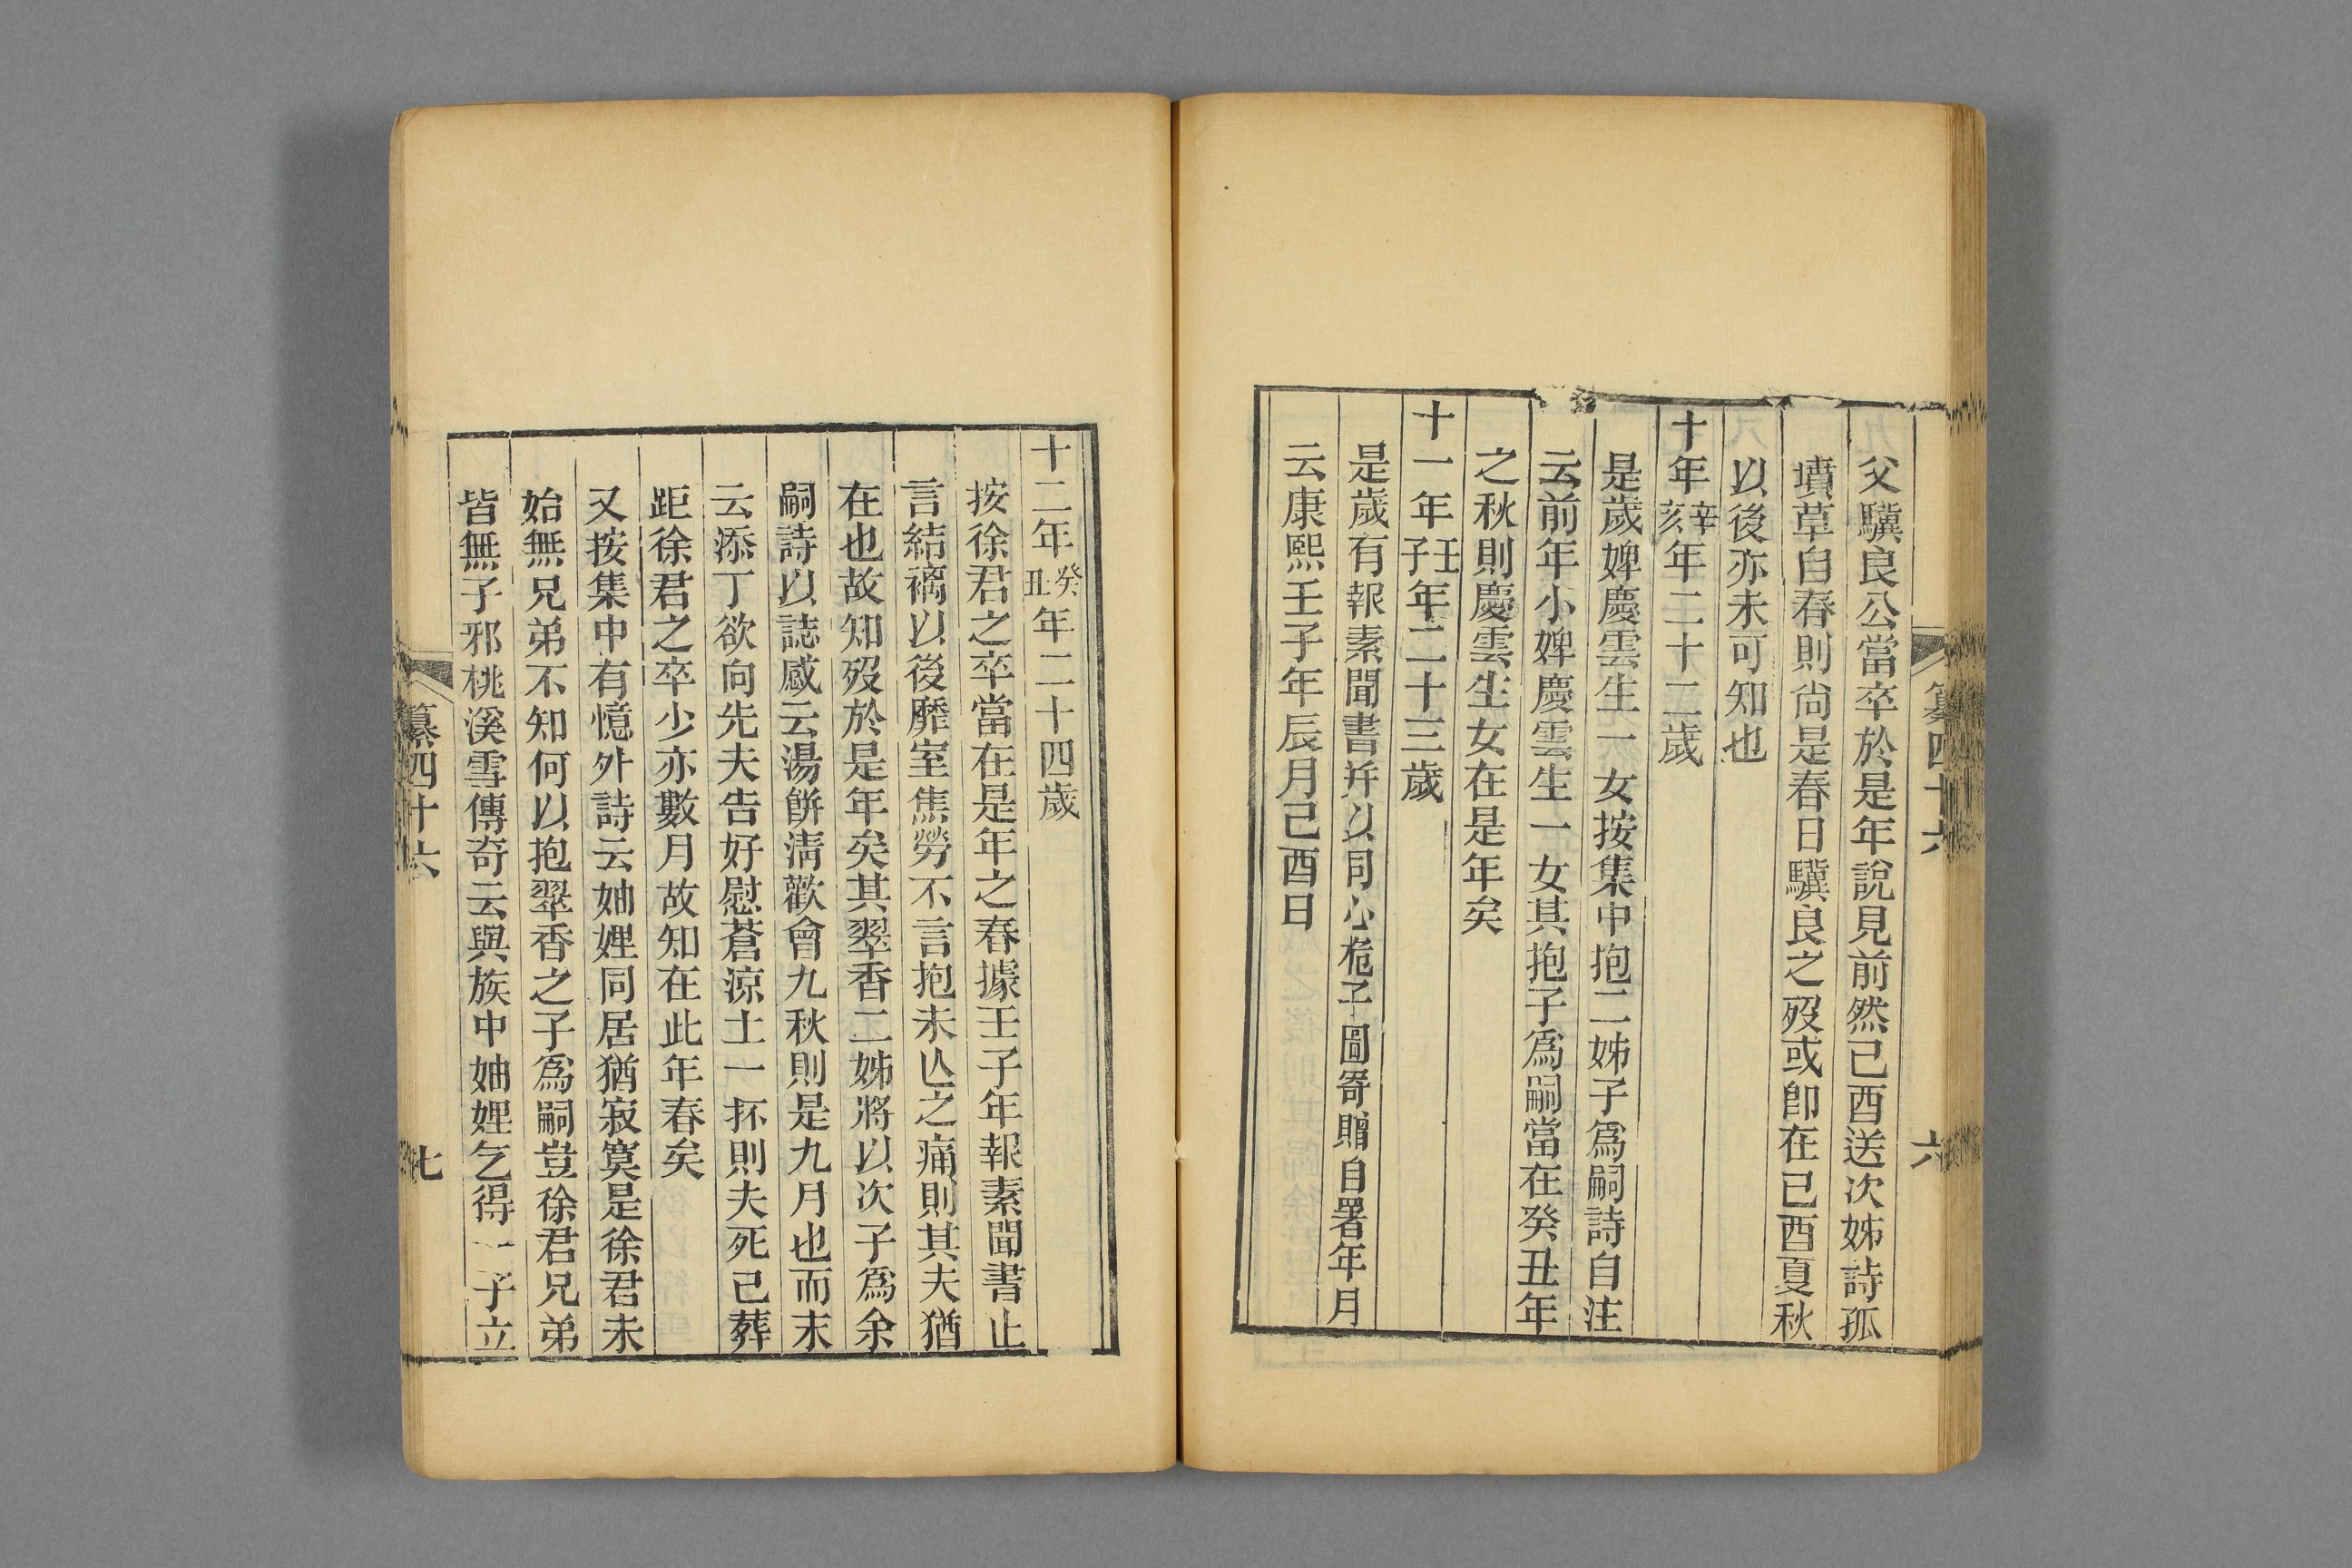 纂四十六
六
父驥良公當卒於是年說見前然己酉送次姊詩孤
墳草自春則尙是春日驥良之歿或卽在己酉夏秋
以後亦未可知也
十年辛亥年二十二歲
是歲婢慶雲生一女按集中抱二姊子爲嗣詩自注
云前年小婢慶雲生一女其抱子爲嗣當在癸丑年
之秋則慶雲生女在是年矣
十一年壬子年二十三歲
是歲有報素聞書并以同心梔子圖寄贈自署年月
云康熙壬子年辰月己酉日
十二年癸丑年二十四歲
按徐君之卒當在是年之春據壬子年報素聞書止
言結褵以後靡室焦勞不言抱未亾之痛則其夫猶
在也故知歿於是年矣其翠香二姊將以次子爲余
嗣詩以誌感云湯餅淸歡會九秋則是九月也而末
云添丁欲向先夫告好慰蒼涼土一抔則夫死已葬
距徐君之卒少亦數月故知在此年春矣
又按集中有憶外詩云妯娌同居猶寂寞是徐君未
始無兄弟不知何以抱翠香之子爲嗣豈徐君兄弟
皆無子邪桃溪雪傳奇云與族中妯娌乞得一子立
纂四十六
七